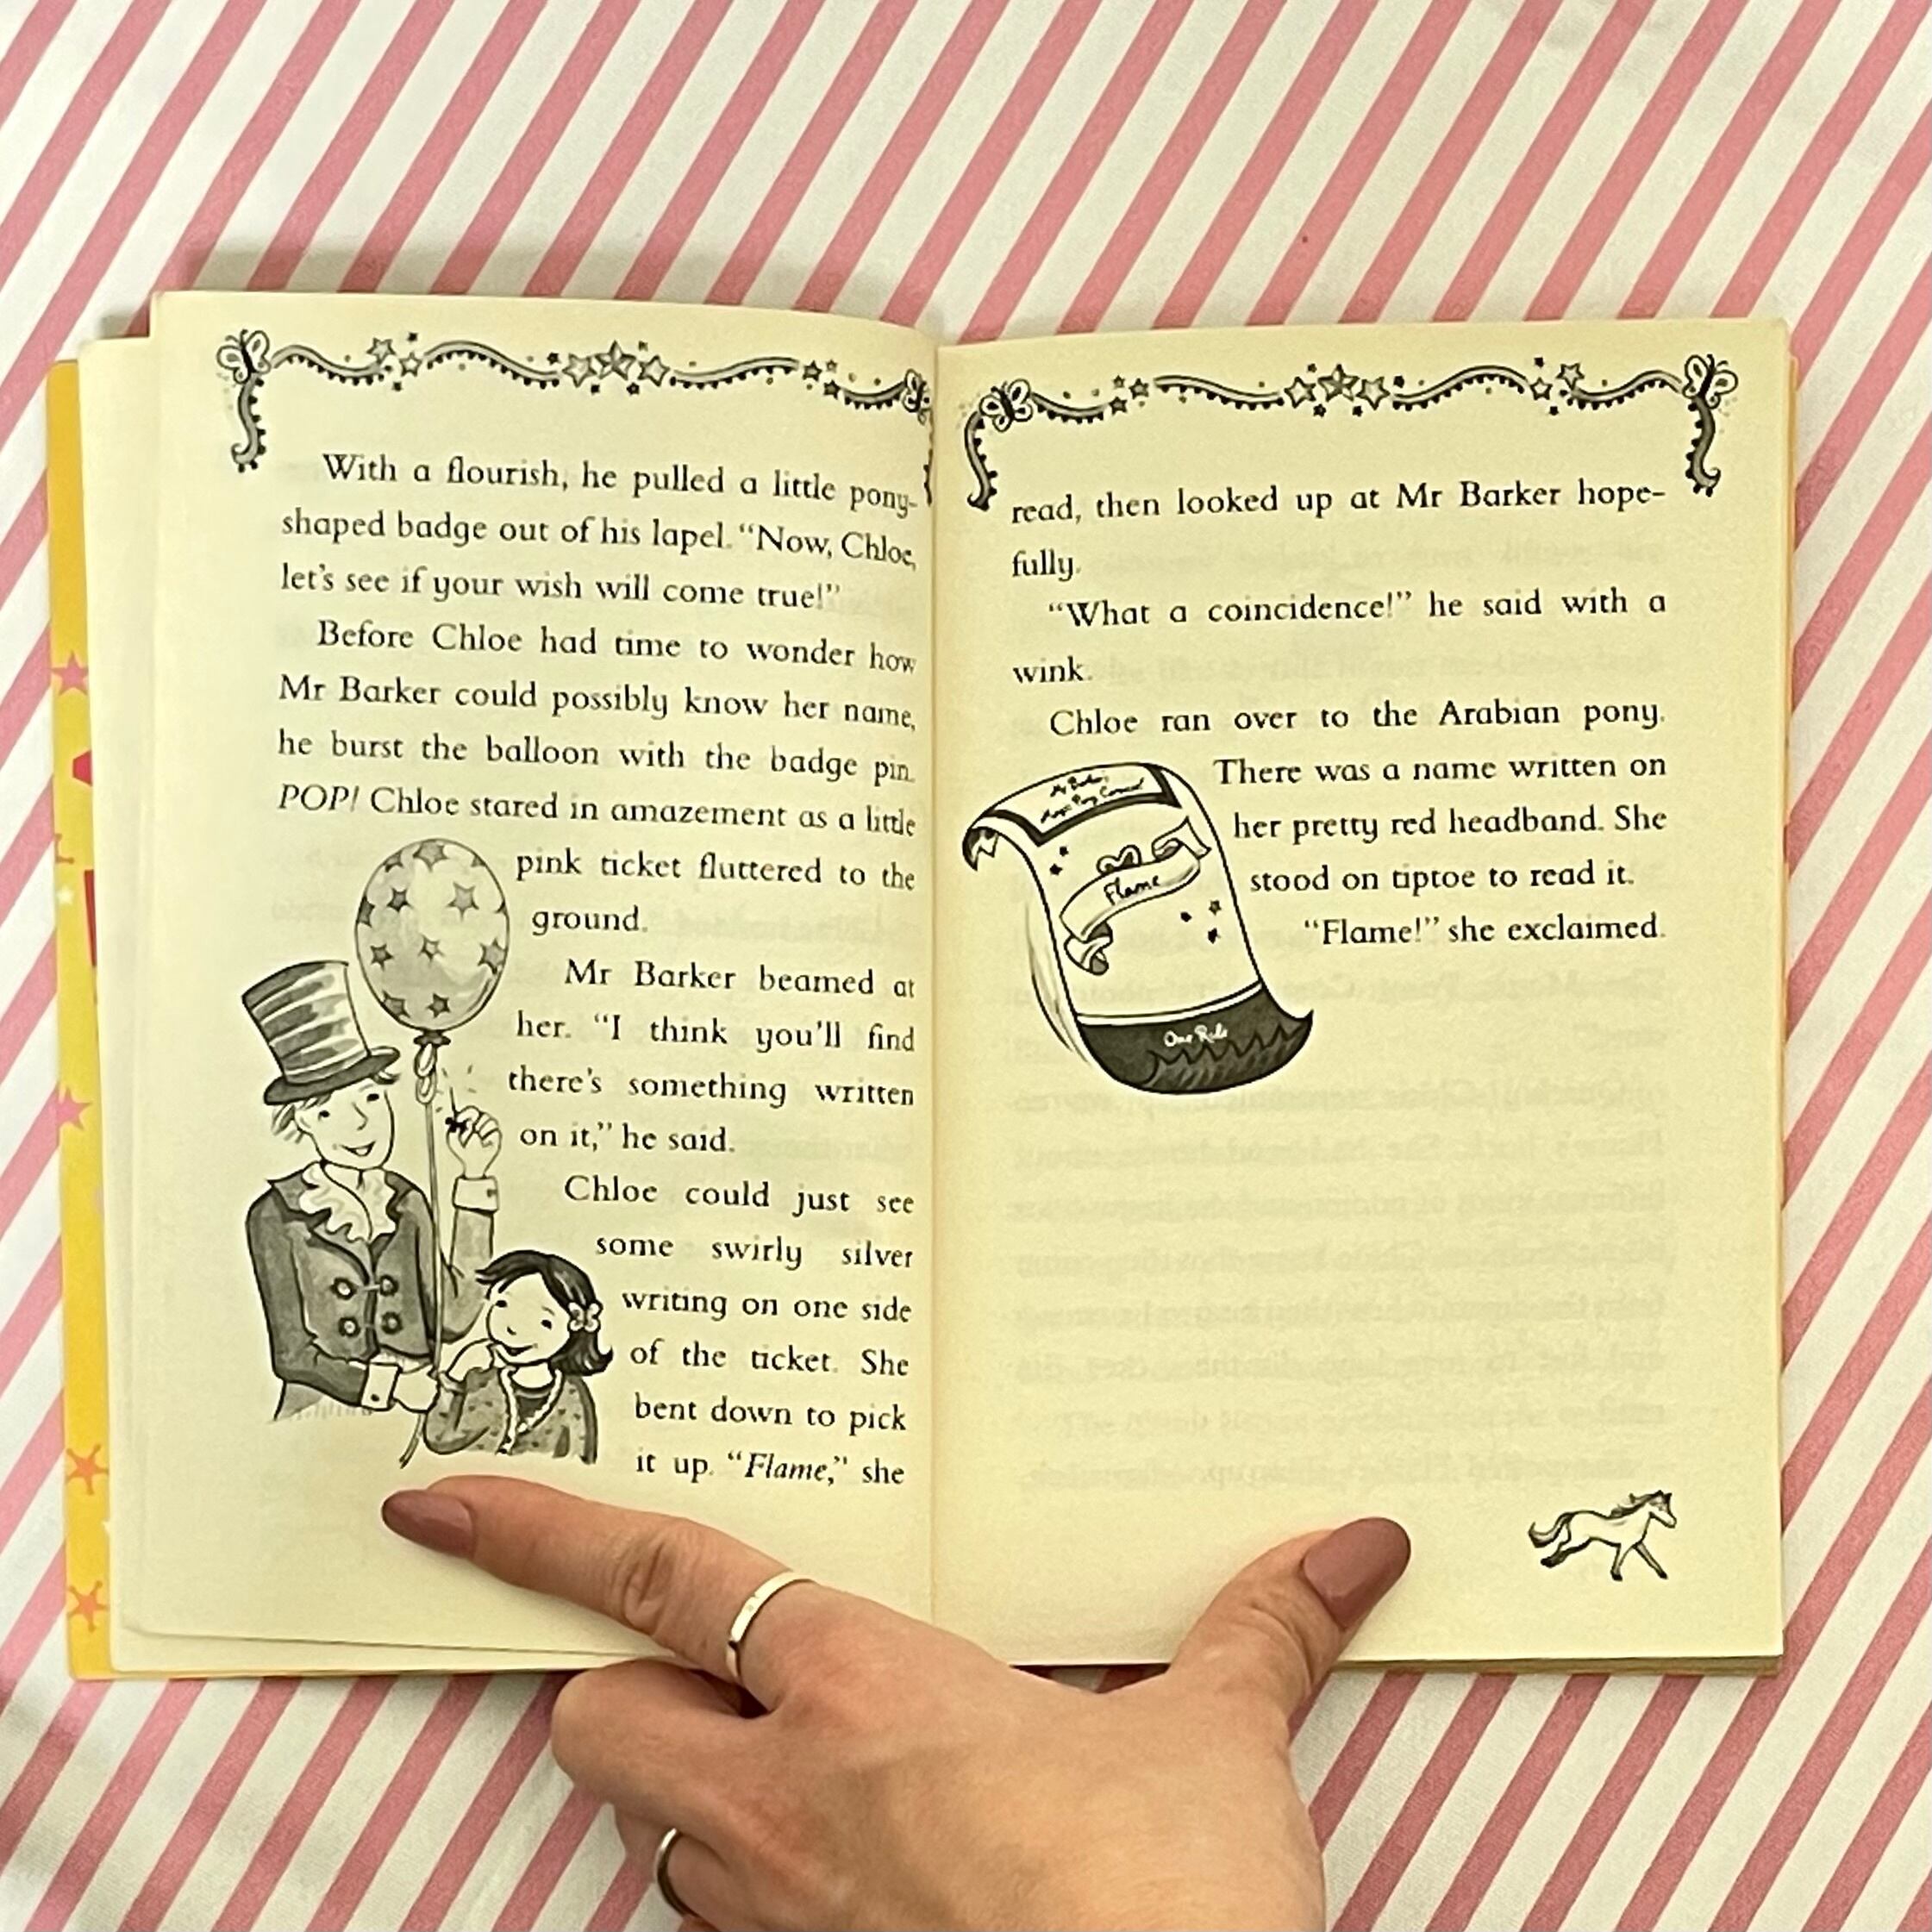 With a flourish, he pulled a little pony-
shaped badge out of his lapel. “Now, Chloe,
let’s see if your wish will come true!”
Before Chloe had time to wonder how
Mr Barker could possibly know her name,
he burst the balloon with the badge pin.
POP! Chloe stared in amazement as a little
pink ticket fluttered to the
ground.
Mr Barker beamed at
her. “I think you’ll find
there’s something written
on it,” he said.
Chloe could just see
some swirly silver
writing on one side
of the ticket. She
bent down to pick
it up. “Flame,” she
read, then looked up at Mr Barker hope-
fully.
“What a coincidence!” he said with a
wink.
Chloe ran over to the Arabian pony.
There was a name written on
her pretty red headband. She
stood on tiptoe to read it.
“Flame!” she exclaimed.
Mr Barker's
Magic Pony Carousel
Flame
One Ride